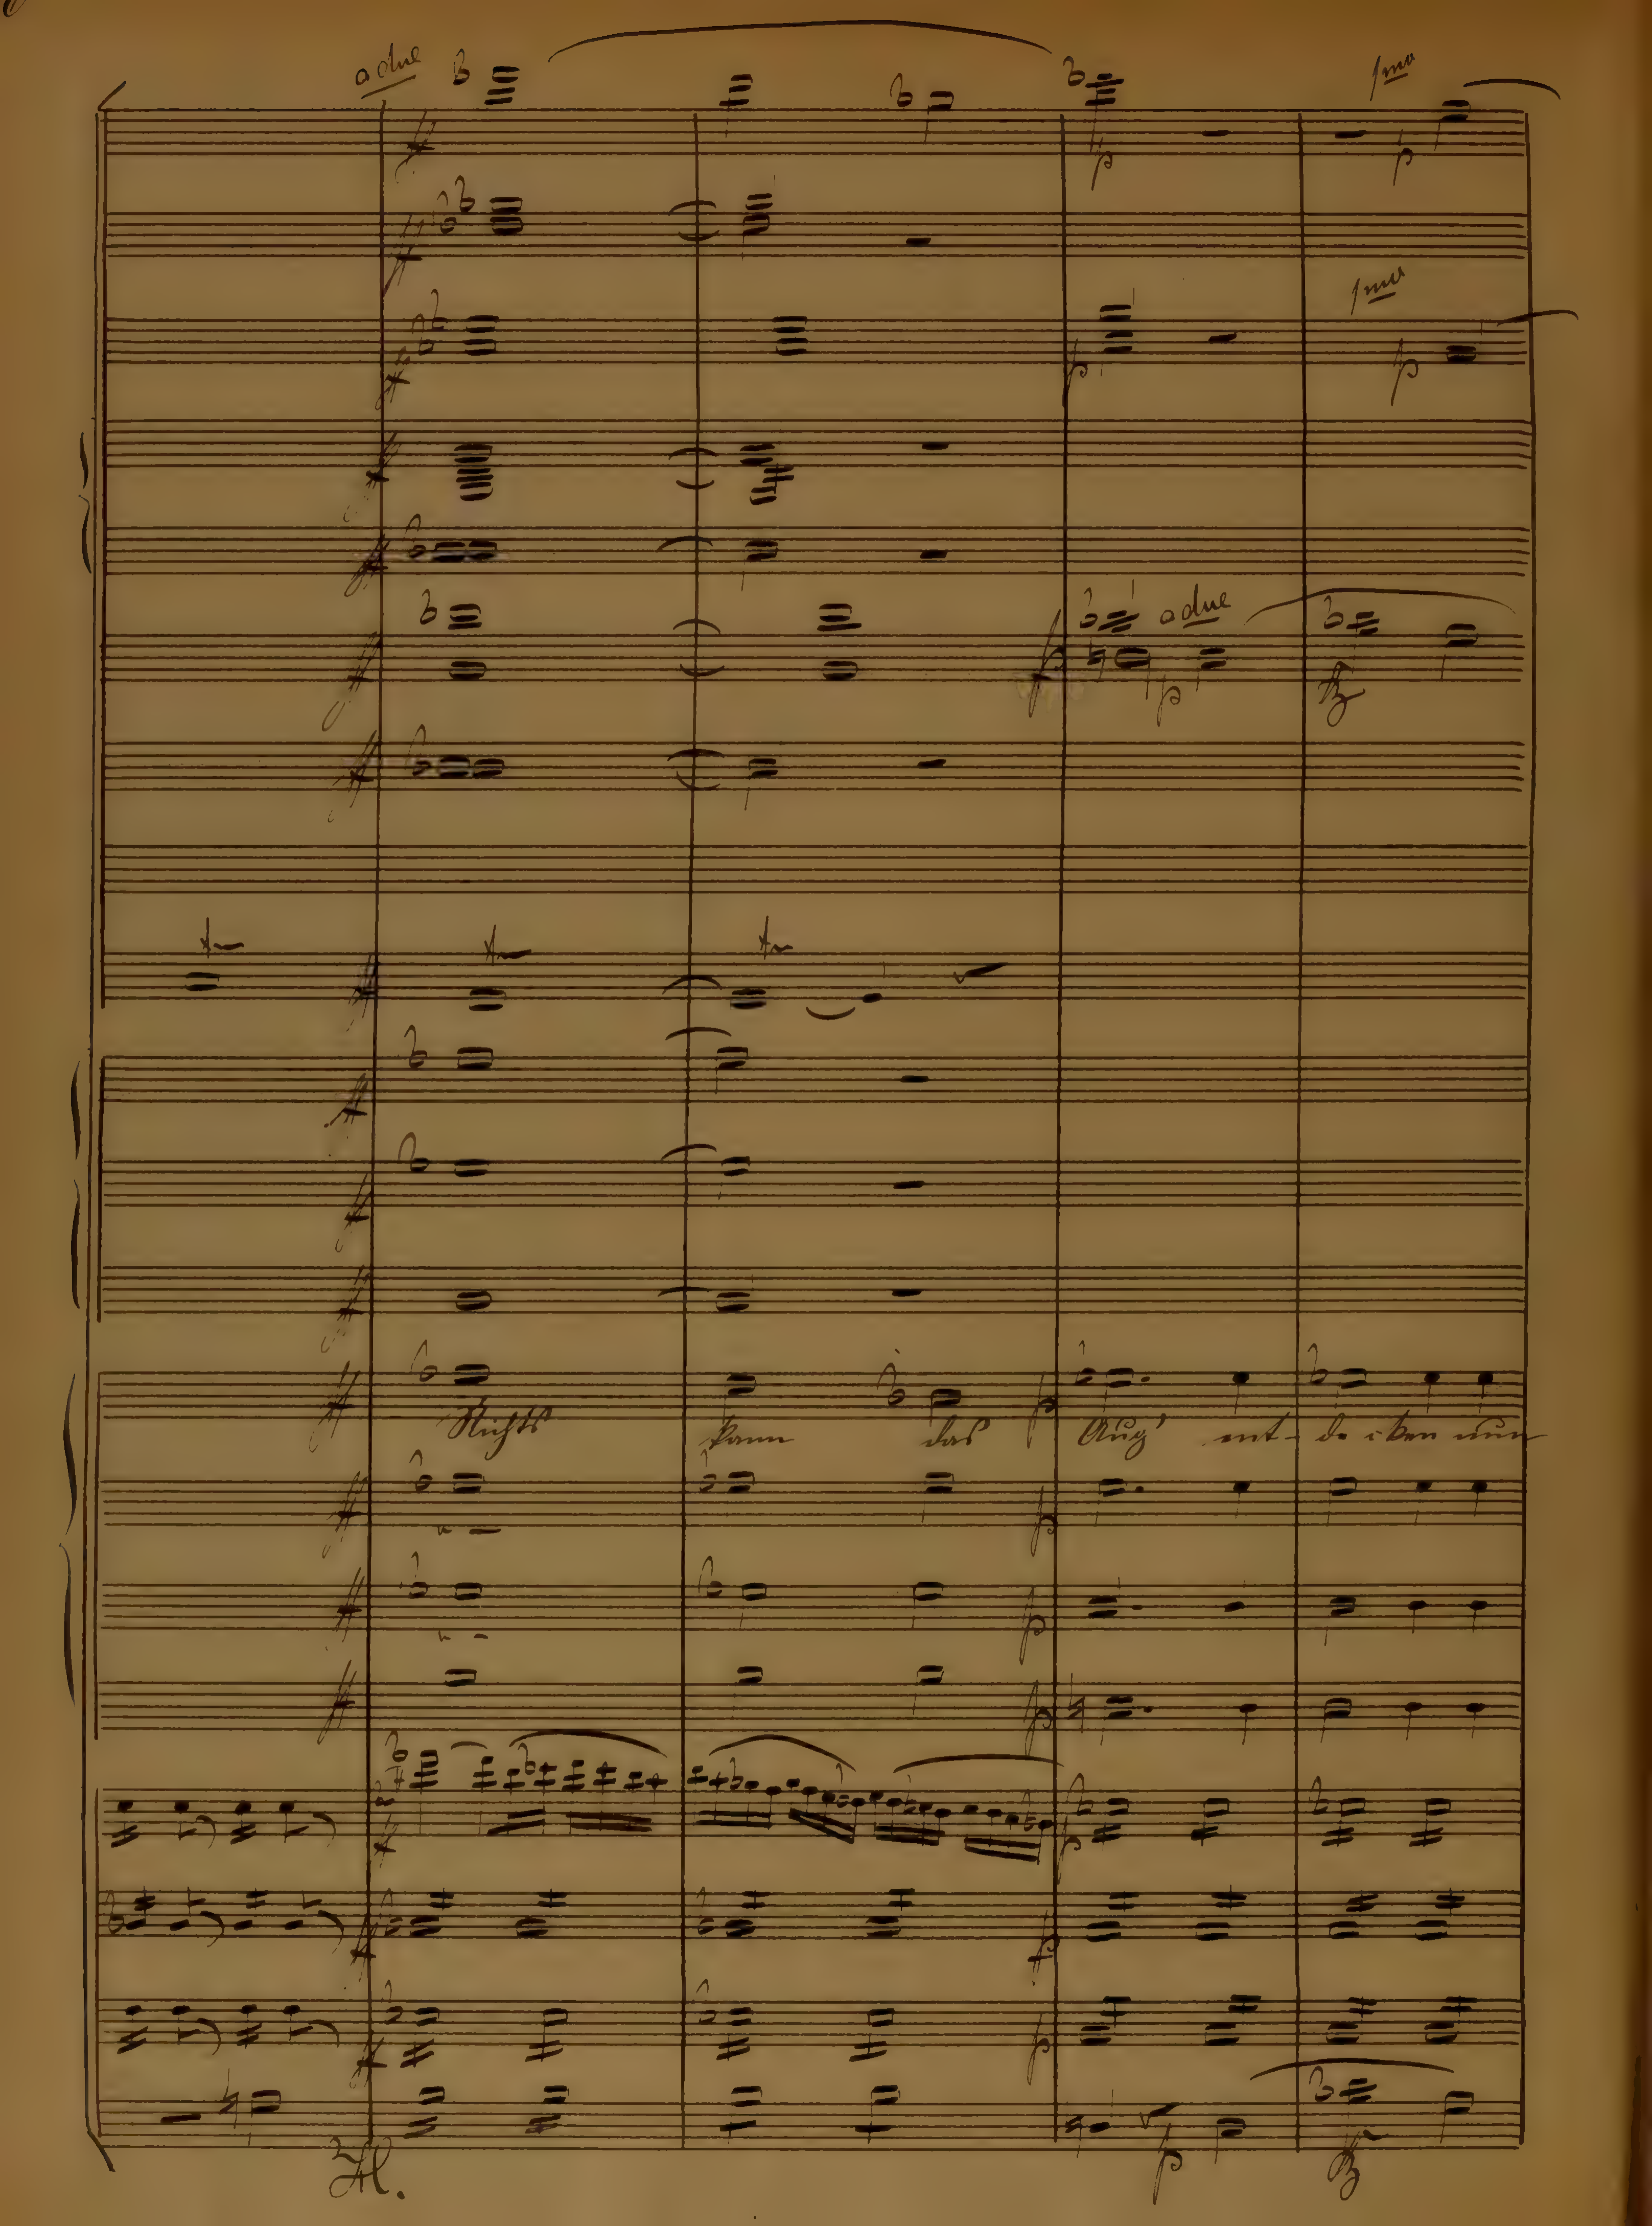 a due
1mo
1mo
a due
Nichts kann das Aug' ent- de cken nun